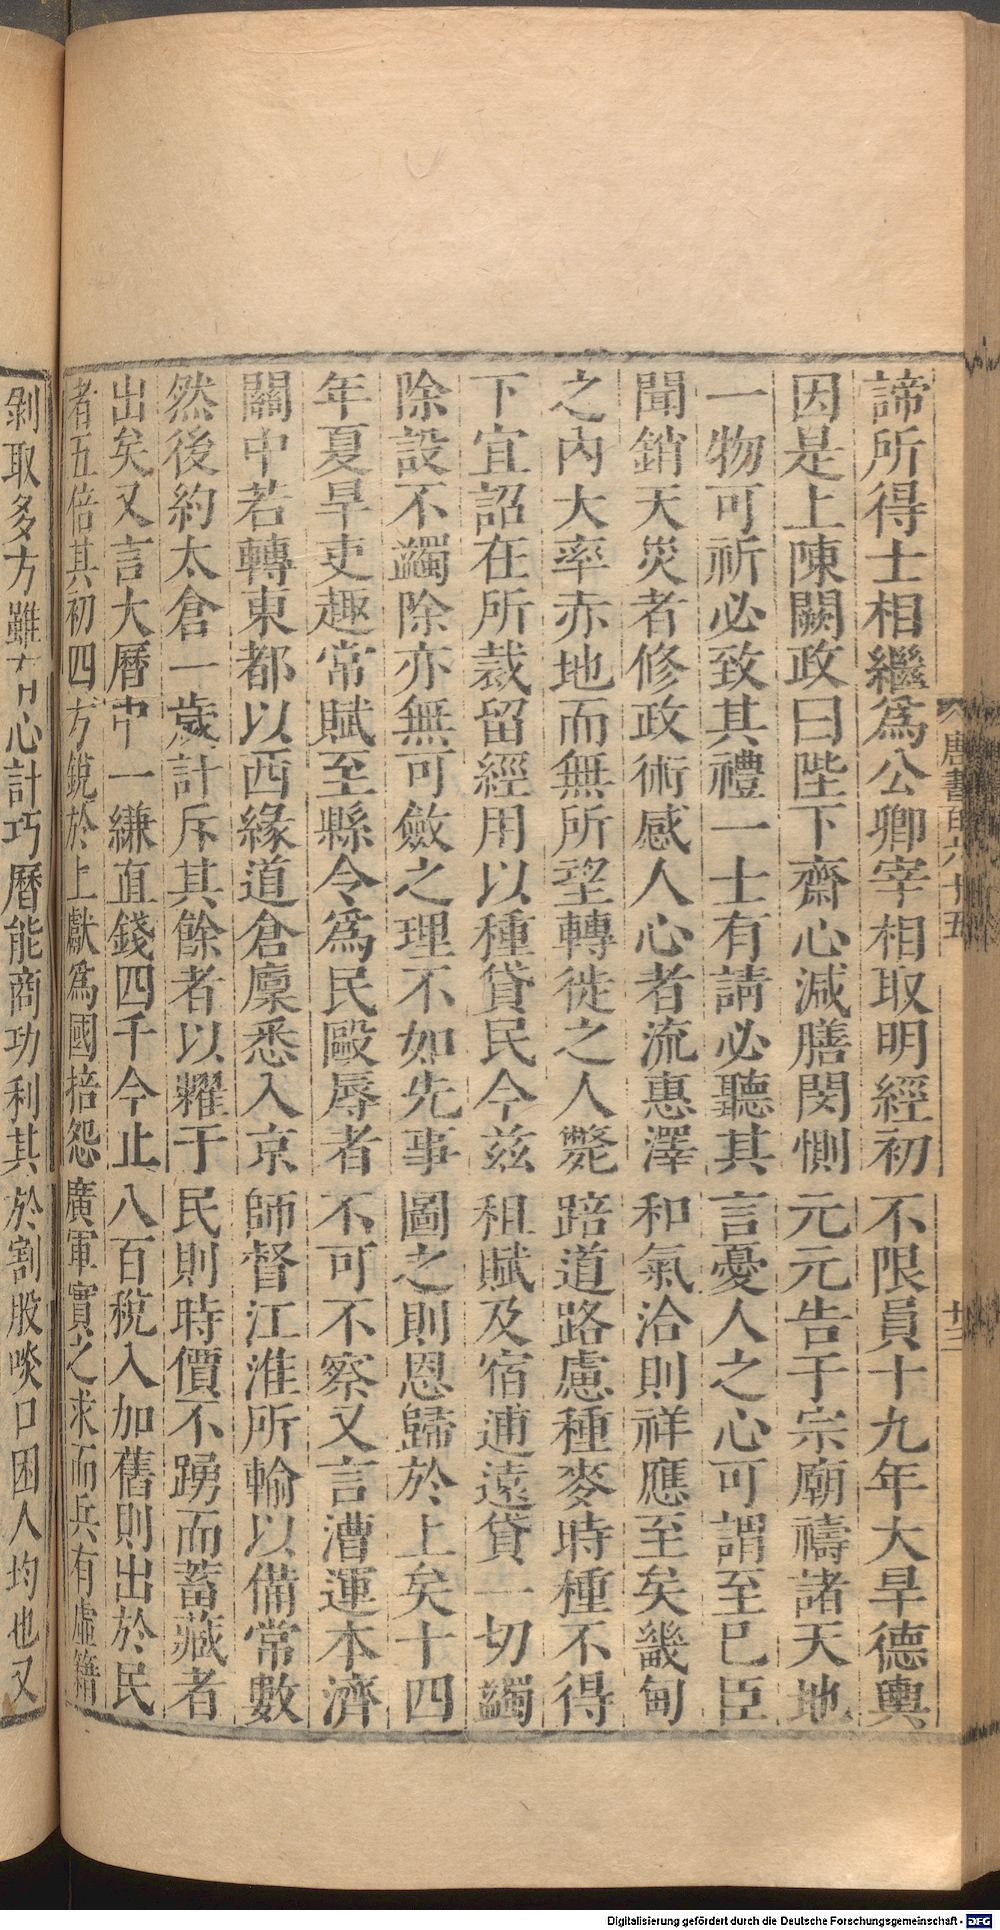 唐書百六十五
廿二
諦所得士相繼為公卿宰相取明經初不限員十九年大旱德輿
因是上陳闕政曰陛下齋心減膳閔惻元元告于宗廟禱諸天地
一物可祈必致其禮一士有請必聽其言憂人之心可謂至已臣
聞銷天災者修政術感人心者流惠澤和氣洽則祥應至矣畿甸
之內大率赤地而無所望轉徙之人斃踣道路慮種麥時種不得
下宜詔在所裁留經用以種貸民今茲租賦及宿逋遠貸一切蠲
除設不蠲除亦無可斂之理不如先事圖之則恩歸於上矣十四
年夏旱吏趣常賦至縣令為民毆辱者不可不察又言漕運本濟
關中若轉東都以西緣道倉廩悉入京師督江淮所輸以備常數
然後約太倉一歲計斥其餘者以糶于民則時價不踴而蓄藏者
出矣又言大曆中一縑直錢四千今止八百稅入加舊則出於民
者五倍其初四方銳於上獻為國掊怨廣軍實之求而兵有虛籍
剝取多方雖有心計巧曆能商功利其於割股啖口困人均也又
Digitalisierung gefördert durch die Deutsche Forschungsgemeinschaft - DFG